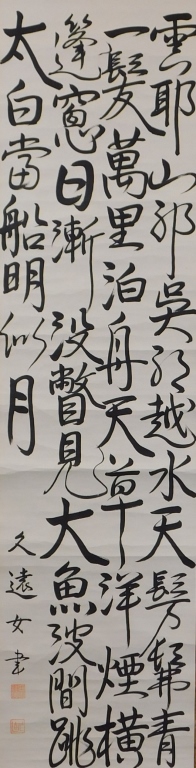 雲耶山耶呉耶越水天髣髴青
一髪萬里泊舟天草洋煙横
篷窓日漸没瞥見大魚波間跳
太白當船明似月
久遠女書